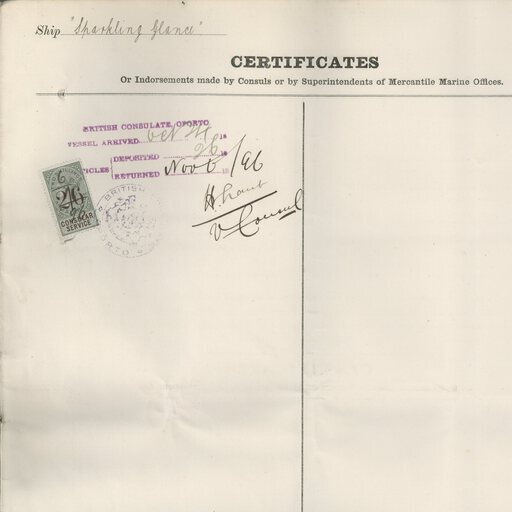 Ship "Sparkling Glance"
CERTIFICATES
Or Indorsements made by Consuls or by Superintendents of Mercantile Marine Offices.
BRITISH CONSULATE, OPORTO
VESSEL ARRIVED Oct 24 18
DEPOSITED 26 18
TICLES
RETURNED Nov 6 /96
2/6
CONSULAR
SERVICE
BRITISH
V Consul